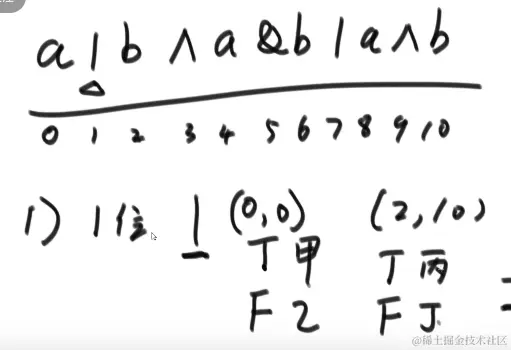 a | b ∧ a & b | a ∧ b
0 1 2 3 4 5 6 7 8 9 10
1) 1位 | (0,0) (2,10)
T 甲 T 丙
F 乙 F 丁
@稀土掘金技术社区